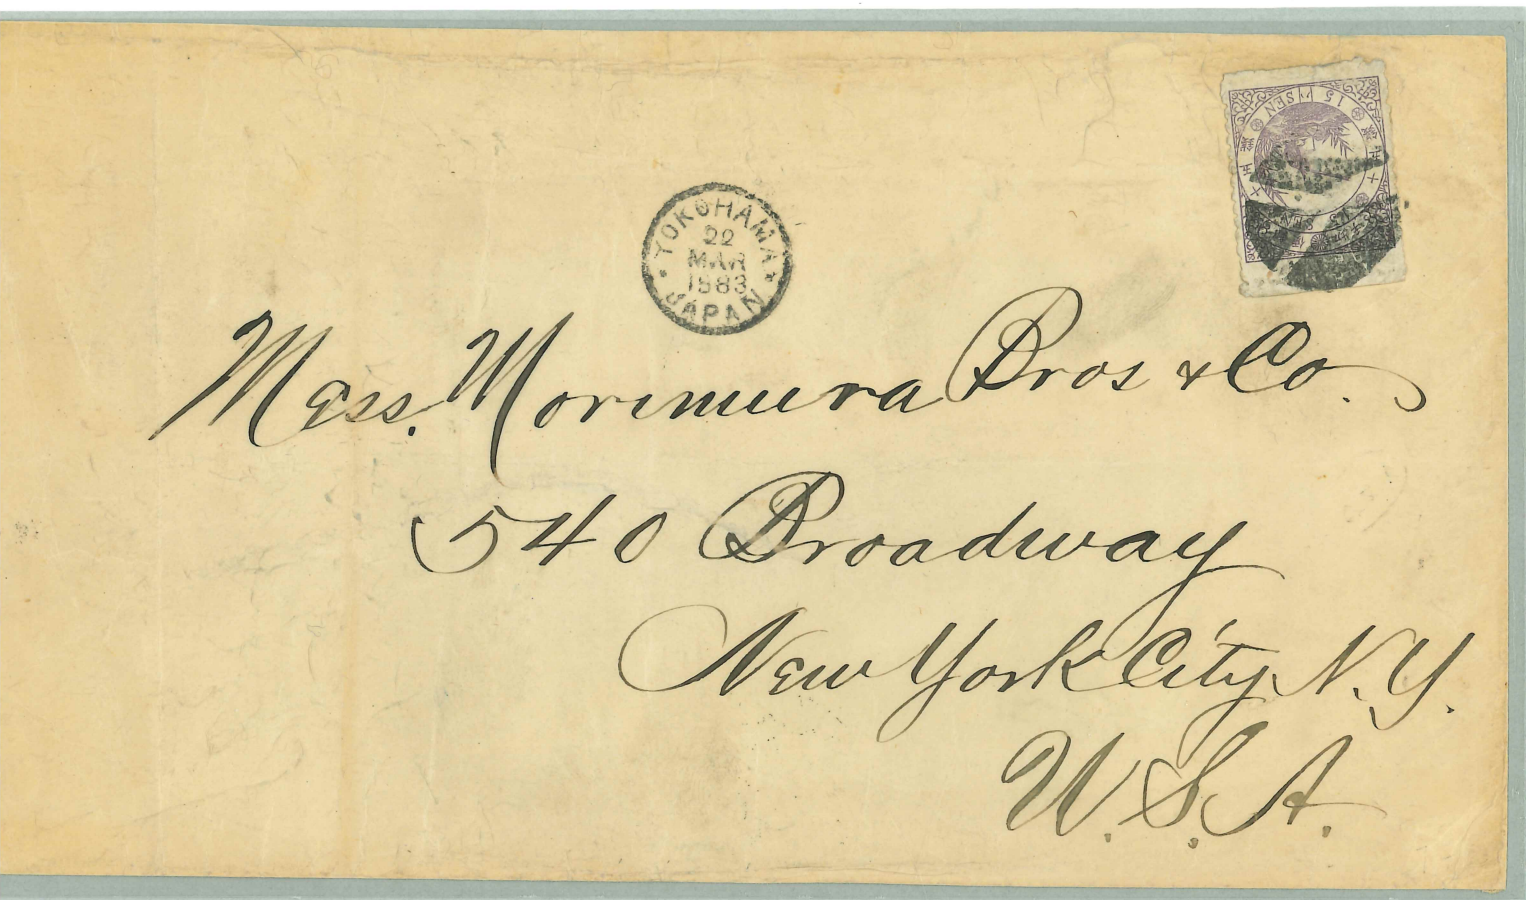 YOKOHAMA
22
MAR
1883
JAPAN
15 SEN
Mess. Morimura Bros & Co.
540 Broadway
New York City, N.Y.
U.S.A.